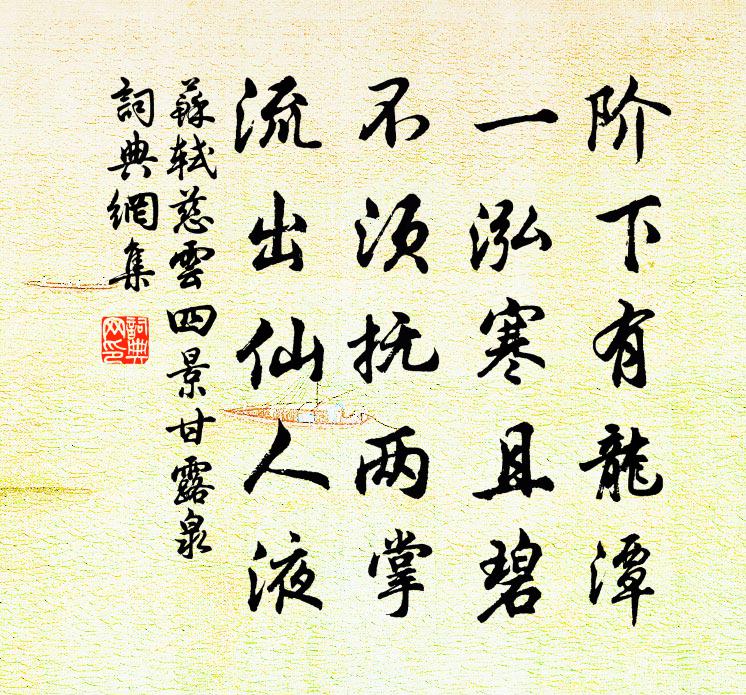 阶下有龍潭
一泓寒且碧
不须抚两掌
流出仙人液
蘇轼慈雲四景甘露泉
詞典網集
詞典网印